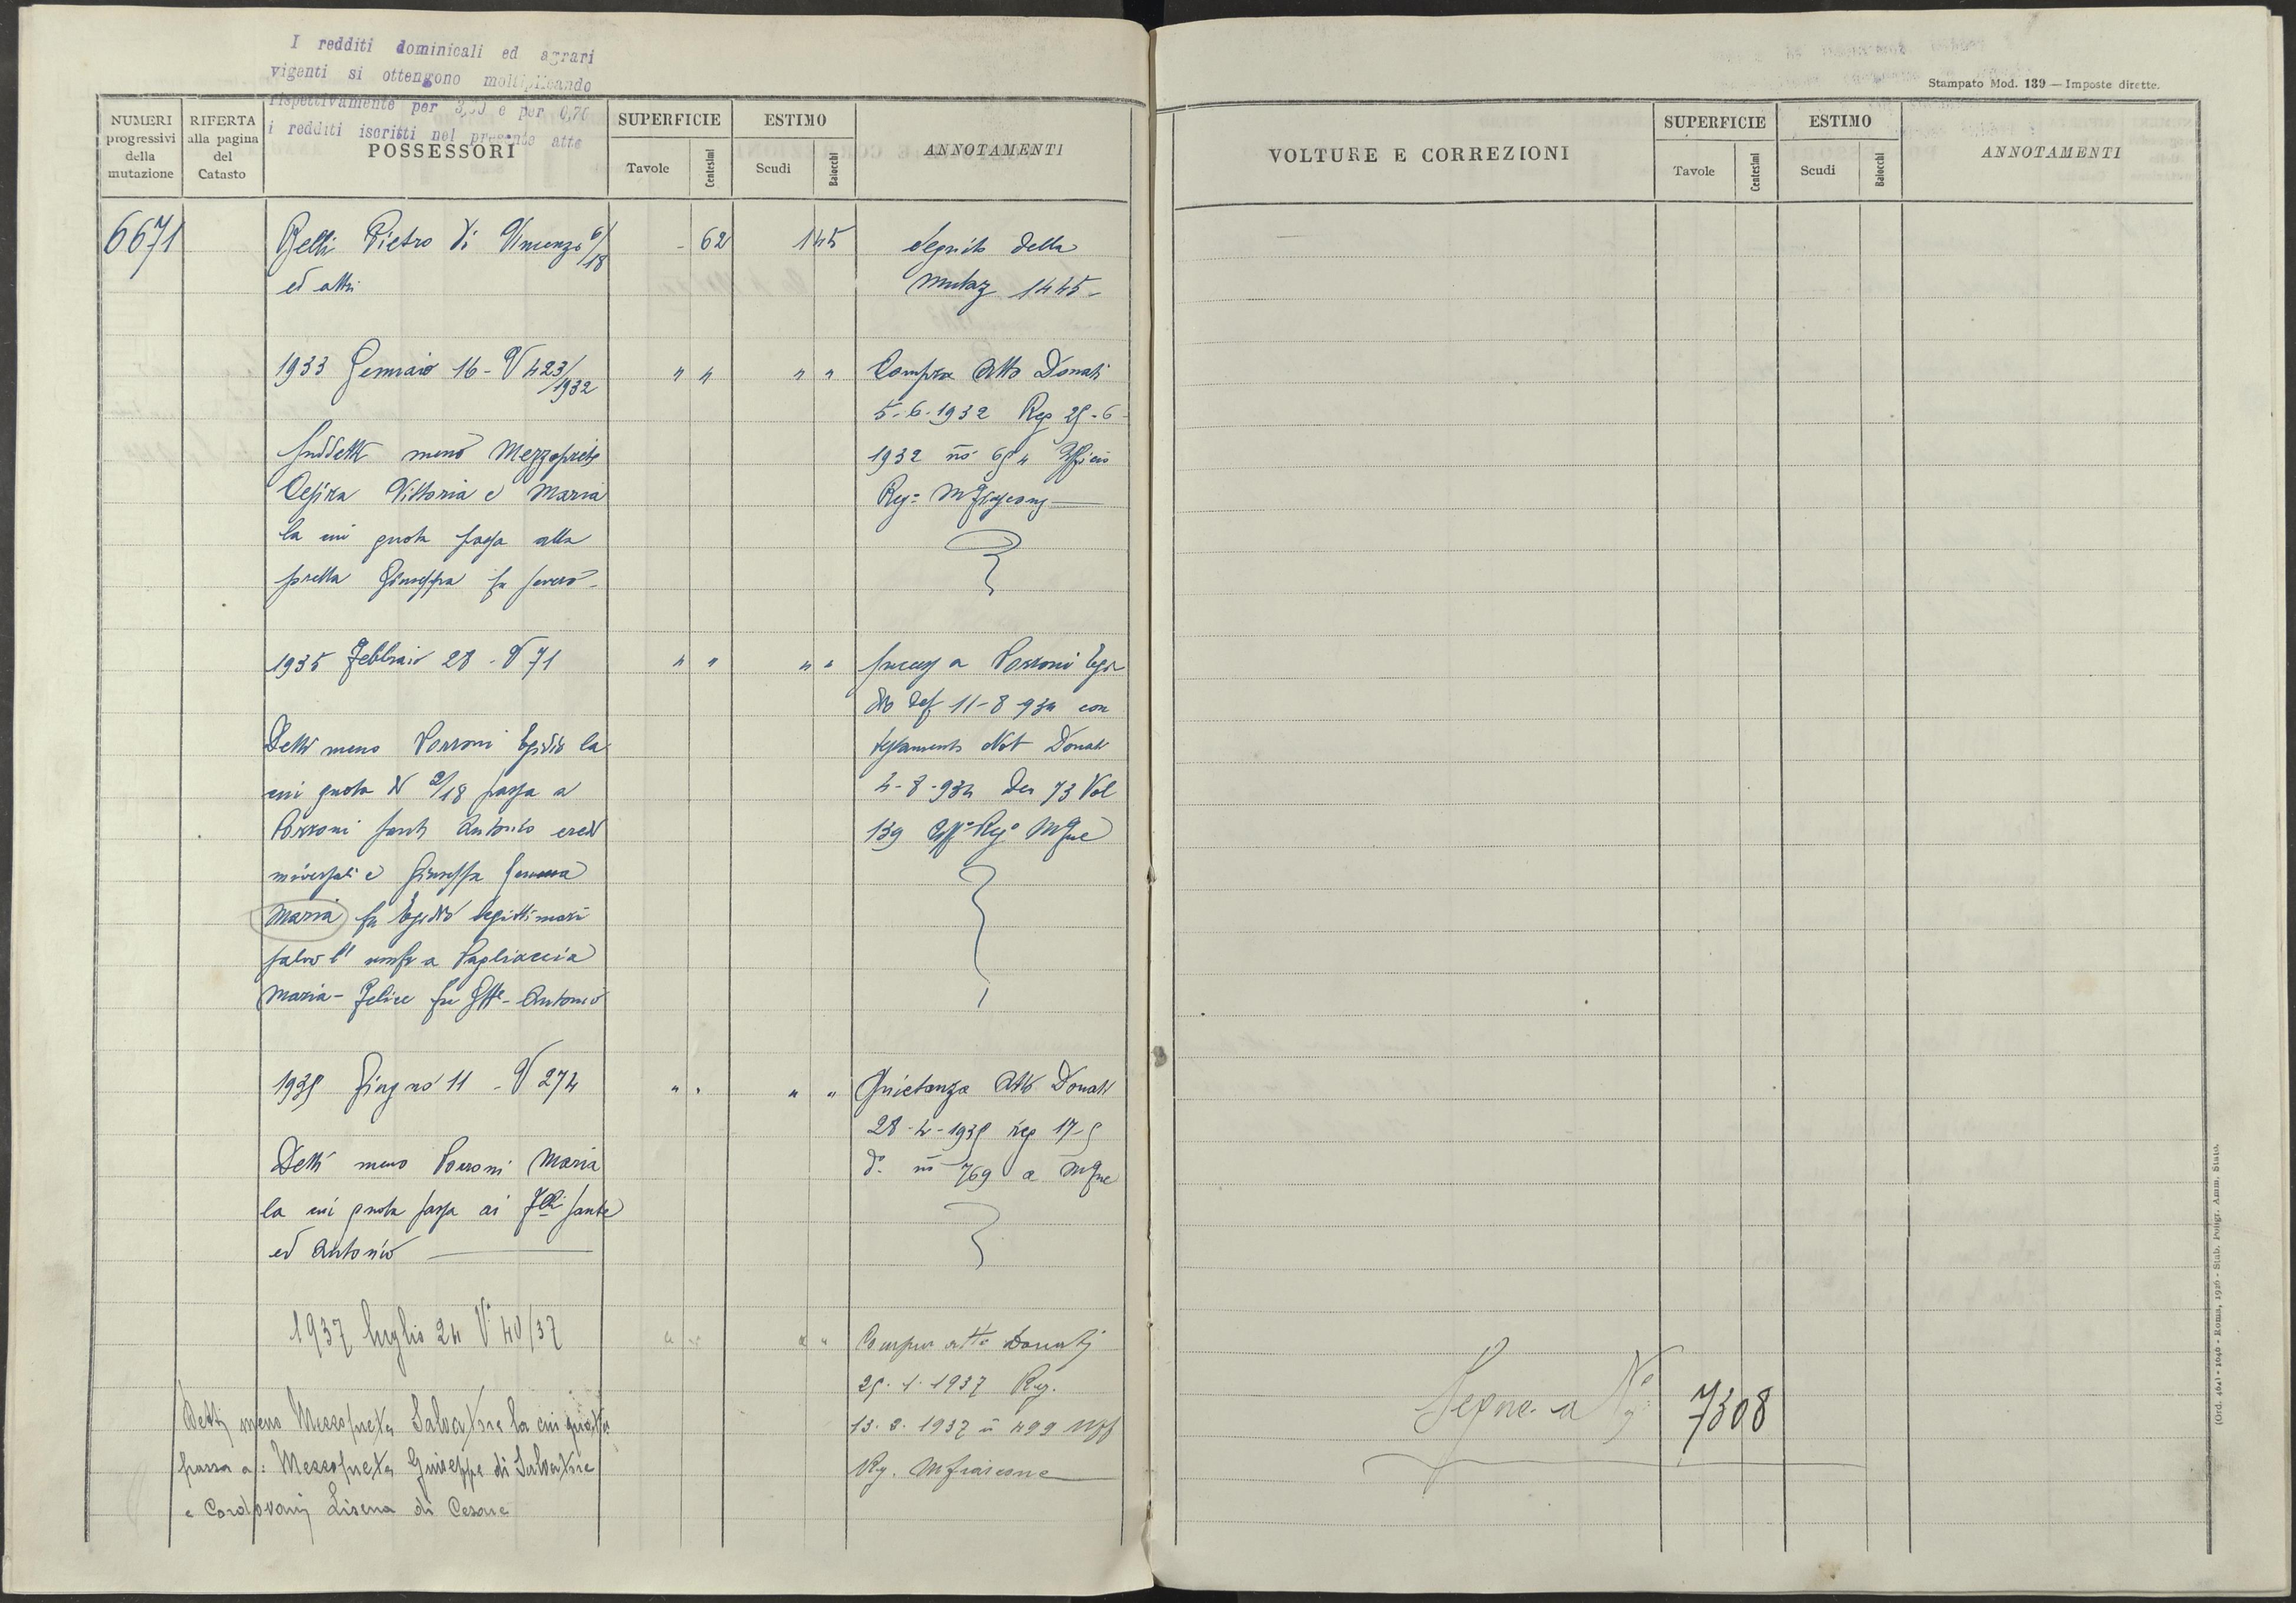 I redditi dominicali ed agrari
vigenti si ottengono moltiplicando
rispettivamente per 3,00 e per 0,70
i redditi iscritti nel presente atto
Stampato Mod. 139 — Imposte dirette.
NUMERI progressivi della mutazione
RIFERTA alla pagina del Catasto
POSSESSORI
SUPERFICIE
Tavole
Centesimi
ESTIMO
Scudi
Baiocchi
ANNOTAMENTI
VOLTURE E CORREZIONI
SUPERFICIE
Tavole
Centesimi
ESTIMO
Scudi
Baiocchi
ANNOTAMENTI
6671
Belli Pietro di Vincenzo 6/18
ed altri
- 62
1 45
Seguito della
Mutaz 1445-
1933 Gennaio 16 - V 423/1932
" "
" "
Compra Atto Donati
5-6-1932 Reg 25-6-
1932 no
Ufficio
Reg=
Suddetti meno Mezzoprete
Vittoria e Maria
la cui quota passa alla
sorella Giuseppa fu
1935 Febbraio 28 - V 71
" "
" "
Success a Porroni Egi
dio 11-8-934 con
testamento Not Donati
4-8-934 Den 73 Vol
139 Uffo Rego Mfne
Detti meno Porroni Egidio la
cui quota di 2/18 passa a
Porroni Sante Antonio eredi
universali e Giuseppa
Maria fu Egidio legittimari
salvo l' usuf a Pagliaccia
Maria-Felice fu Gffe-Antonio
1935 Giugno 11 - V 274
" "
" "
Quietanza Atto Donati
28-4-1935 reg 17-5
do no 769 a Mfne
Detti meno Porroni Maria
la cui quota passa ai Flli Sante
ed Antonio
1937 luglio 24 V. 40/37
" "
" "
Compra atto Donati
25.1.1937 Reg.
13.2.1937 n 499 Uff
Rg. Mfiascone
Detti meno Mezzoprete Salvatore la cui quota
passa a: Mezzoprete Giuseppe di Salvatore
e Cordovani Lisena di Cesare
Segue a No 7308
(Ord. 4641 - 1040 - Roma, 1926 - Stab. Poligr. Amm. Stato.